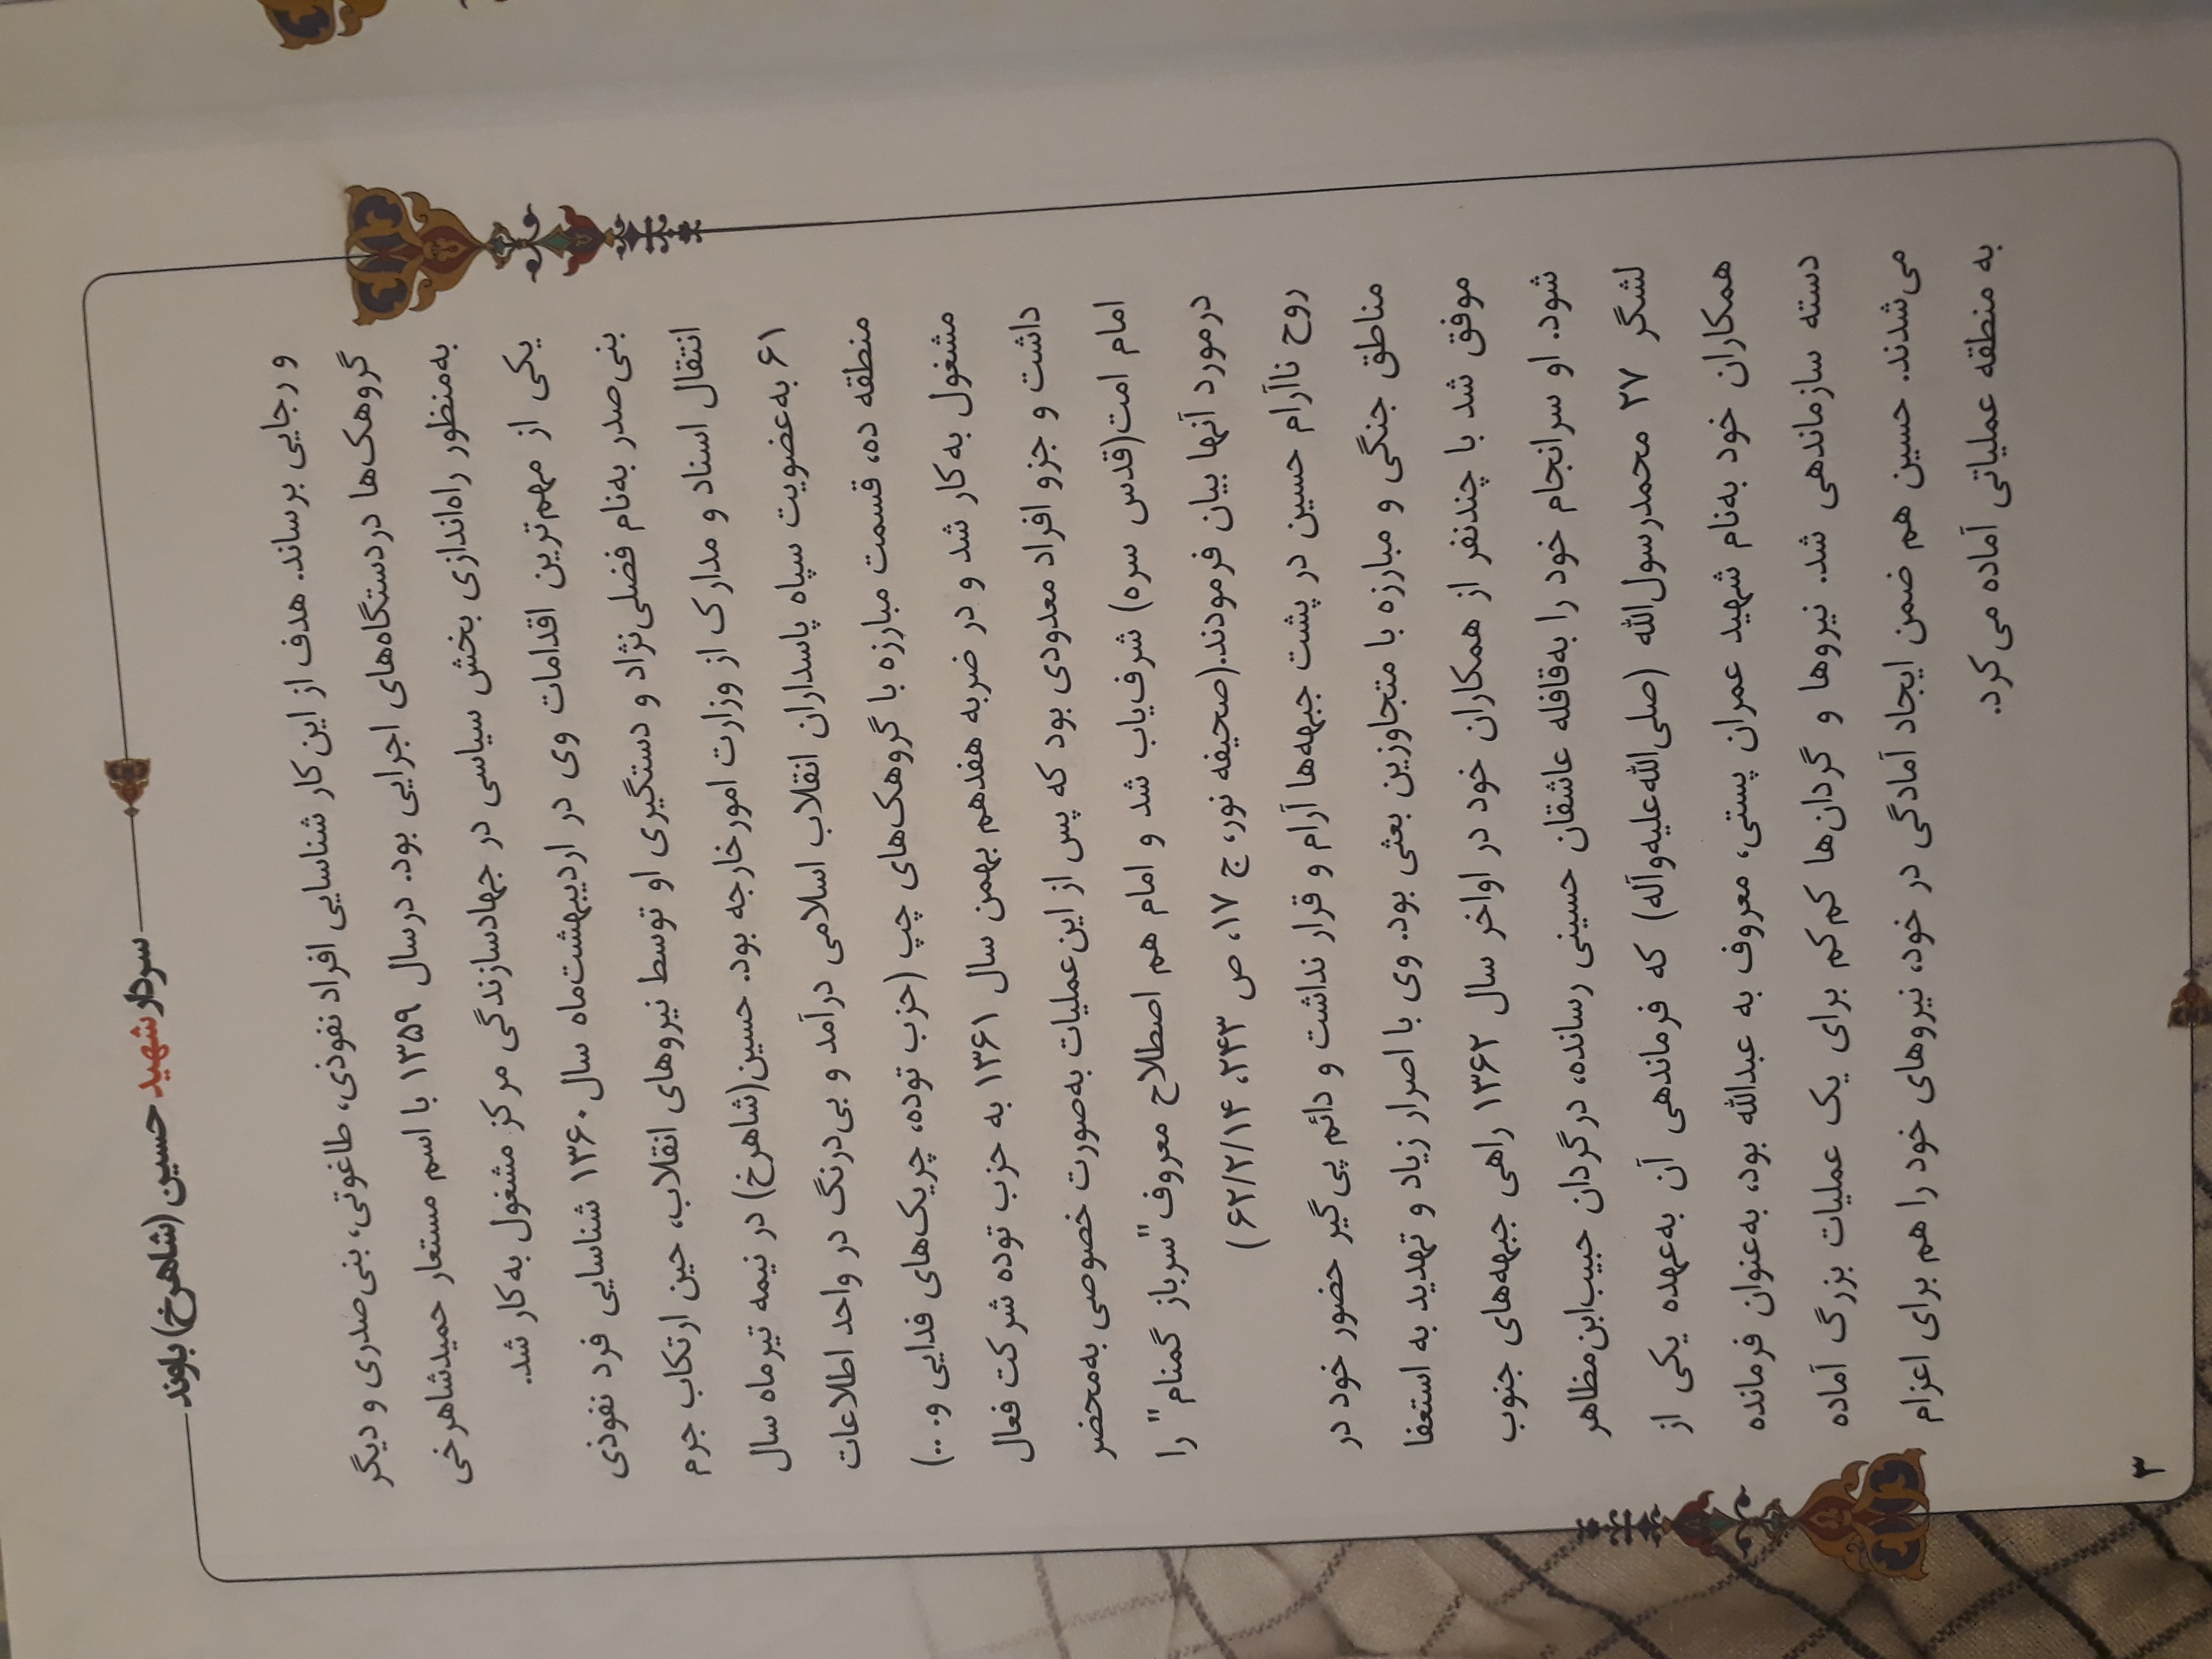 سردار شهید حسین (شاهرخ) باوند
و رجایی برساند. هدف از این کار شناسایی افراد نفوذی، طاغوتی، بنی‌صدری و دیگر
گروهک‌ها دردستگاه‌های اجرایی بود. درسال ۱۳۵۹ با اسم مستعار حمیدشاهرخی
به‌منظور راه‌اندازی بخش سیاسی در جهادسازندگی مرکز مشغول به‌کار شد.
یکی از مهم‌ترین اقدامات وی در اردیبهشت‌ماه سال ۱۳۶۰ شناسایی فرد نفوذی
بنی‌صدر به‌نام فضلی‌نژاد و دستگیری او توسط نیروهای انقلاب، حین ارتکاب جرم
انتقال اسناد و مدارک از وزارت امورخارجه بود. حسین(شاهرخ) در نیمه تیرماه سال
۶۱ به‌عضویت سپاه پاسداران انقلاب اسلامی درآمد و بی‌درنگ در واحد اطلاعات
منطقه ده، قسمت مبارزه با گروهک‌های چپ (حزب توده، چریک‌های فدایی و...)
مشغول به‌کار شد و در ضربه هفدهم بهمن سال ۱۳۶۱ به حزب توده شرکت فعال
داشت و جزو افراد معدودی بود که پس از این‌عملیات به‌صورت خصوصی به‌محضر
امام امت(قدس سره) شرف‌یاب شد و امام هم اصطلاح معروف "سرباز گمنام" را
درمورد آنها بیان فرمودند.(صحیفه نور، ج ۱۷، ص ۲۴۳، ۶۲/۲/۱۴)
روح ناآرام حسین در پشت جبهه‌ها آرام و قرار نداشت و دائم پی‌گیر حضور خود در
مناطق جنگی و مبارزه با متجاوزین بعثی بود. وی با اصرار زیاد و تهدید به استعفا
موفق شد با چندنفر از همکاران خود در اواخر سال ۱۳۶۲ راهی جبهه‌های جنوب
شود. او سرانجام خود را به‌قافله عاشقان حسینی رسانده، درگردان حبیب‌ابن‌مظاهر
لشگر ۲۷ محمدرسول‌الله (صلی‌الله‌علیه‌وآله) که فرماندهی آن به‌عهده یکی از
همکاران خود به‌نام شهید عمران پستی، معروف به عبدالله بود، به‌عنوان فرمانده
دسته سازماندهی شد. نیروها و گردان‌ها کم‌کم برای یک عملیات بزرگ آماده
می‌شدند. حسین هم ضمن ایجاد آمادگی در خود، نیروهای خود را هم برای اعزام
به منطقه عملیاتی آماده می‌کرد.
۳